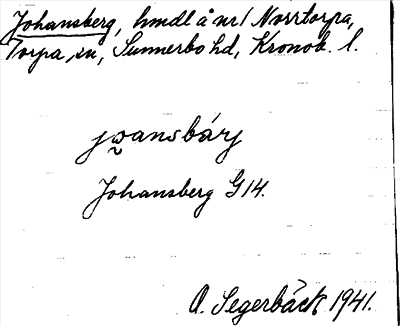 Johansberg, hmdl å nr 1 Norrtorpa,
Torpa sn, Sunnerbo hd, Kronob. l.
jωansbárj
Johansberg G 14.
A. Segerbäck 1941.